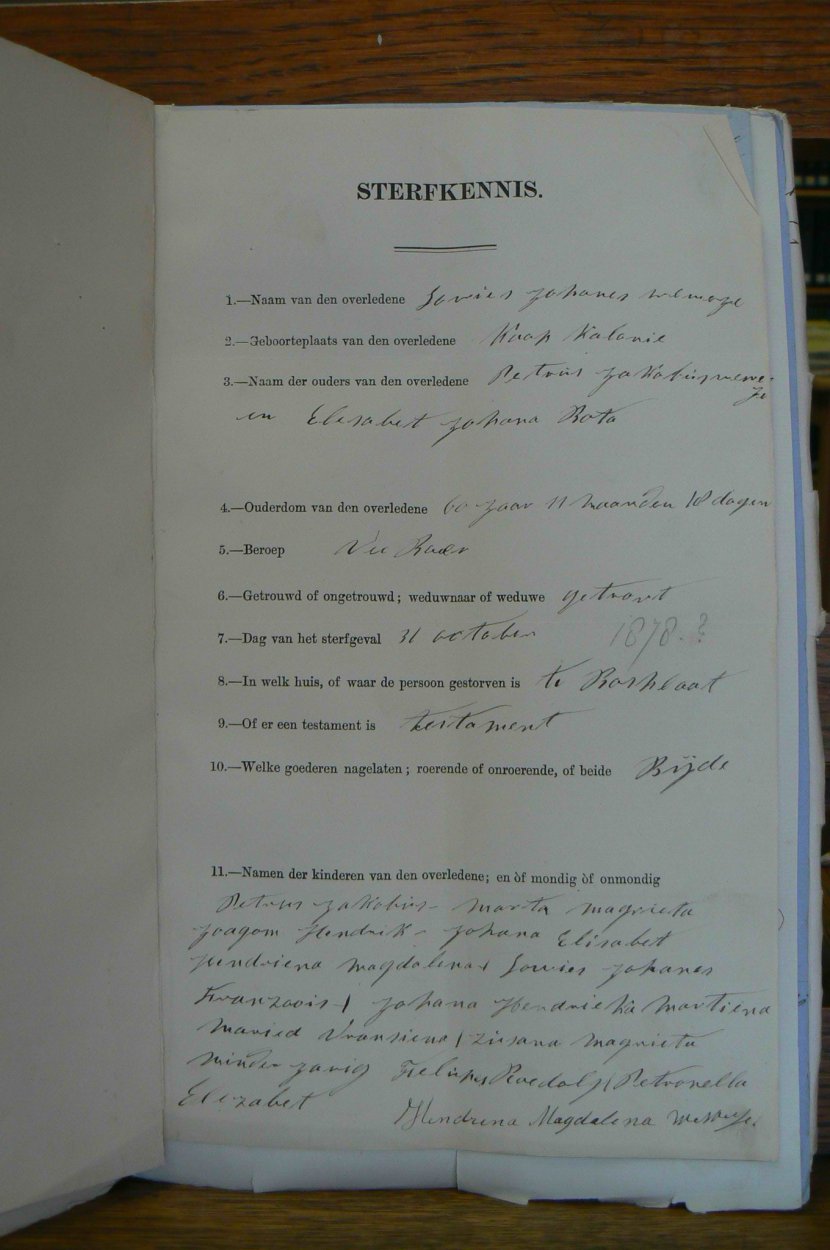 STERFKENNIS.
1.—Naam van den overledene Lowies Johanes
2.—Geboorteplaats van den overledene Kaap Kalonie
3.—Naam der ouders van den overledene Petrus Jakobus
en Elesabet Johana Bota
4.—Ouderdom van den overledene 60 jaar 11 maanden 18 dagen
5.—Beroep Vee Boer
6.—Getrouwd of ongetrouwd; weduwnaar of weduwe getrout
7.—Dag van het sterfgeval 31 october 1878.?
8.—In welk huis, of waar de persoon gestorven is te
9.—Of er een testament is testament
10.—Welke goederen nagelaten; roerende of onroerende, of beide Bijde
11.—Namen der kinderen van den overledene; en òf mondig òf onmondig
Petrus Jakobus - Marta Magrieta
Joagom Hendrik - Johana Elisabet
Hendriena Magdalena / Lowies Johanes
Franzoois / Johana Hendrieka Martiena
Maried Vransiena / Zusana Magrieta
minder jarig Roedolf / Petronella
Elezabet
Hendrina Magdalena